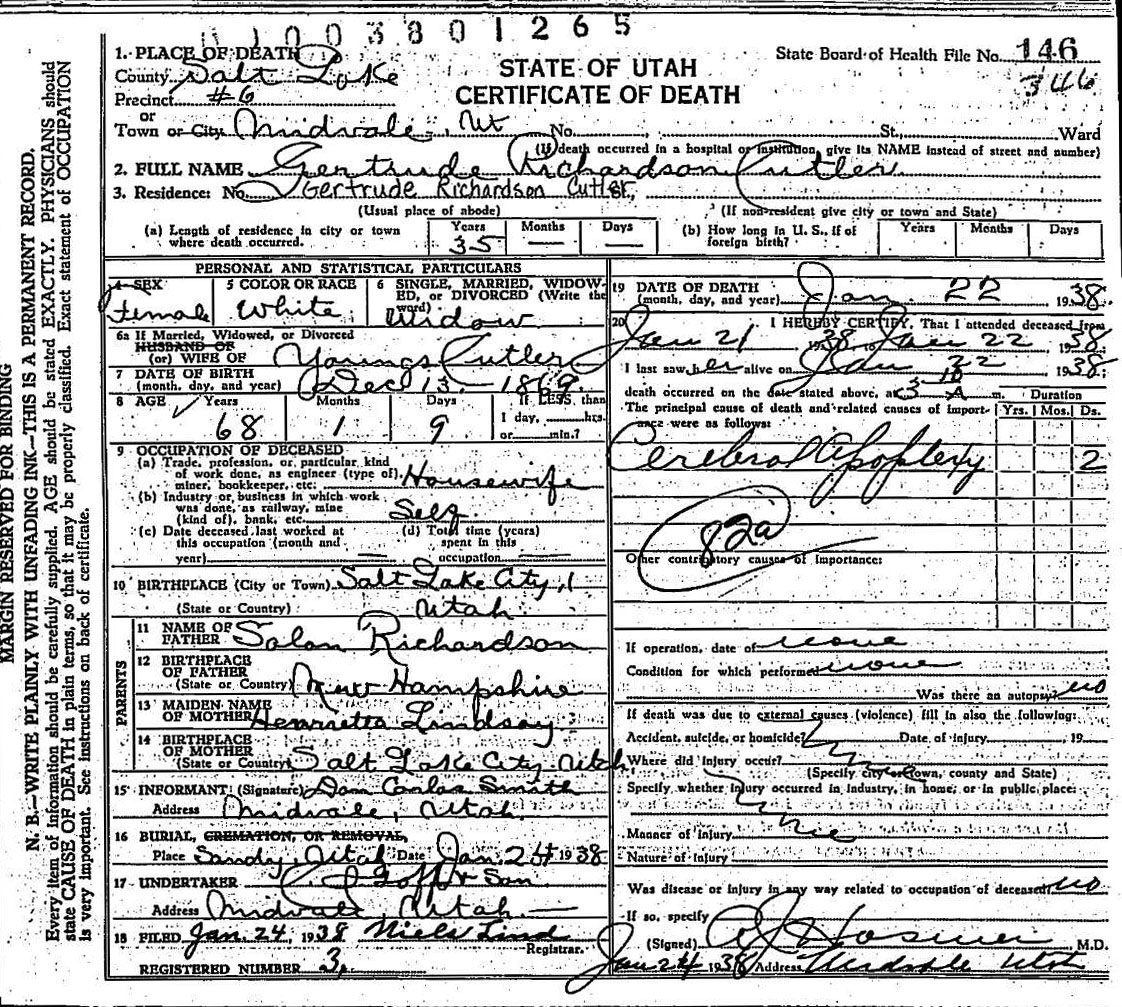 1003801265
State Board of Health File No. 146
346
STATE OF UTAH
CERTIFICATE OF DEATH
1. PLACE OF DEATH
County Salt Lake
Precinct #6
or
Town or City Midvale, Ut No. St., Ward
(If death occurred in a hospital or institution, give its NAME instead of street and number)
2. FULL NAME Gertrude Richardson Cutler
3. Residence: No. Gertrude Richardson Cutler,
(Usual place of abode) (If non-resident give city or town and State)
(a) Length of residence in city or town where death occurred. Years 35 Months — Days —
(b) How long in U. S., if of foreign birth? Years Months Days
MARGIN RESERVED FOR BINDING
N. B.—WRITE PLAINLY WITH UNFADING INK—THIS IS A PERMANENT RECORD.
Every item of information should be carefully supplied. AGE should be stated EXACTLY. PHYSICIANS should
state CAUSE OF DEATH in plain terms, so that it may be properly classified. Exact statement of OCCUPATION
is very important. See instructions on back of certificate.
PERSONAL AND STATISTICAL PARTICULARS
4 SEX Female
5 COLOR OR RACE White
6 SINGLE, MARRIED, WIDOWED, or DIVORCED (Write the word) Widow
6a If Married, Widowed, or Divorced
HUSBAND OF
(or) WIFE OF Youngs Cutler
7 DATE OF BIRTH
(month, day, and year) Dec 13 - 1869
8 AGE Years 68 Months 1 Days 9 If LESS than 1 day, hrs. or min.?
9 OCCUPATION OF DECEASED
(a) Trade, profession, or particular kind of work done, as engineer (type of) miner, bookkeeper, etc. Housewife
(b) Industry or business in which work was done, as railway, mine (kind of), bank, etc. Self
(c) Date deceased last worked at this occupation (month and year) —
(d) Total time (years) spent in this occupation —
10 BIRTHPLACE (City or Town) Salt Lake City,
(State or Country) Utah
PARENTS
11 NAME OF FATHER Solon Richardson
12 BIRTHPLACE OF FATHER
(State or Country) New Hampshire
13 MAIDEN NAME OF MOTHER Henrietta Lindsay
14 BIRTHPLACE OF MOTHER
(State or Country) Salt Lake City Utah
15 INFORMANT: (Signature) Don Carlos Smith
Address Midvale, Utah.
16 BURIAL, CREMATION, OR REMOVAL,
Place Sandy, Utah Date Jan. 24 1938
17 UNDERTAKER Goff & Son
Address Midvale, Utah.
18 FILED Jan. 24, 1938 Niels Lind
Registrar.
REGISTERED NUMBER 3.
19 DATE OF DEATH
(month, day, and year) Jan. 22 1938
20 I HEREBY CERTIFY, That I attended deceased from
Jan 21 1938 to Jan 22 1938
I last saw her alive on Jan 22 1938
death occurred on the date stated above, at 3 10 A m.
The principal cause of death and related causes of importance were as follows:
Duration
Yrs. Mos. Ds.
Cerebral Apoplexy 2
82a
Other contributory causes of importance:
If operation, date of none
Condition for which performed none
Was there an autopsy? no
If death was due to external causes (violence) fill in also the following:
Accident, suicide, or homicide? Date of injury 19
Where did injury occur?
(Specify city or town, county and State)
Specify whether injury occurred in industry, in home, or in public place:
Manner of injury
Nature of injury
Was disease or injury in any way related to occupation of deceased no
If so, specify
(Signed) Hosmer M.D.
Jan 24 1938 Address Midvale Utah